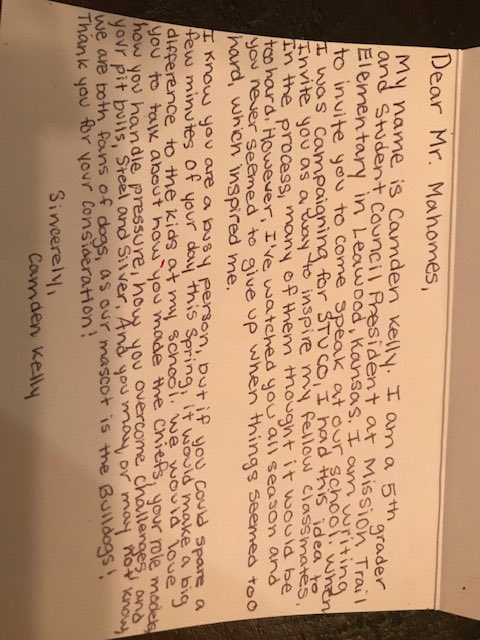 Dear Mr. Mahomes,
My name is Camden Kelly. I am a 5th grader
and Student Council President at Mission Trail
Elementary in Leawood, Kansas. I am writing
to invite you to come speak at our school. When
I was campaigning for STUCO, I had this idea to
invite you as a way to inspire my fellow classmates.
In the process, many of them thought it would be
too hard. However, I've watched you all season and
you never seemed to give up when things seemed too
hard, which inspired me.
I know you are a busy person, but if you could spare a
few minutes of your day this spring, it would make a big
difference to the kids at my school. We would love
you to talk about how you made the Chiefs, your role models,
how you handle pressure, how you overcome challenges and
your pit bulls, Steel and Silver. And you may or may not know,
we are both fans of dogs as our mascot is the Bulldogs!
Thank you for your consideration!
Sincerely,
Camden Kelly